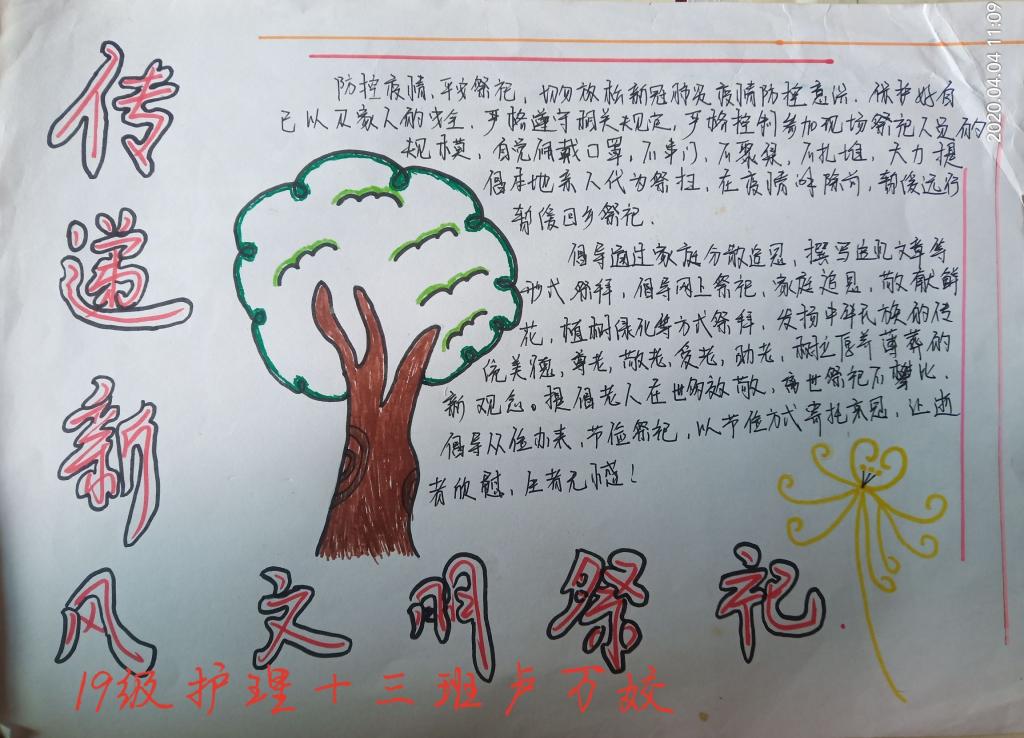 2020.04.04 11:09
传递新风
文明祭祀
防控疫情、平安祭祀,切勿放松新冠肺炎疫情防控意识,保护好自
己以及家人的安全,严格遵守相关规定,严格控制参加现场祭祀人员的
规模,自觉佩戴口罩,不串门,不聚集,不扎堆,大力提
倡本地亲人代为祭扫,在疫情解除前,暂缓远行
暂缓回乡祭祀.
倡导通过家庭分散追思,撰写追忆文章等
形式祭拜,倡导网上祭祀,家庭追思,敬献鲜
花,植树绿化等方式祭拜,发扬中华民族的传
统美德,尊老,敬老,爱老,助老,树立厚养薄葬的
新观念。提倡老人在世多敬,离世祭祀不攀比.
倡导从俭办来,节俭祭祀,以节俭方式寄托哀思,让逝
者欣慰,生者无憾!
19级护理十三班卢万姣